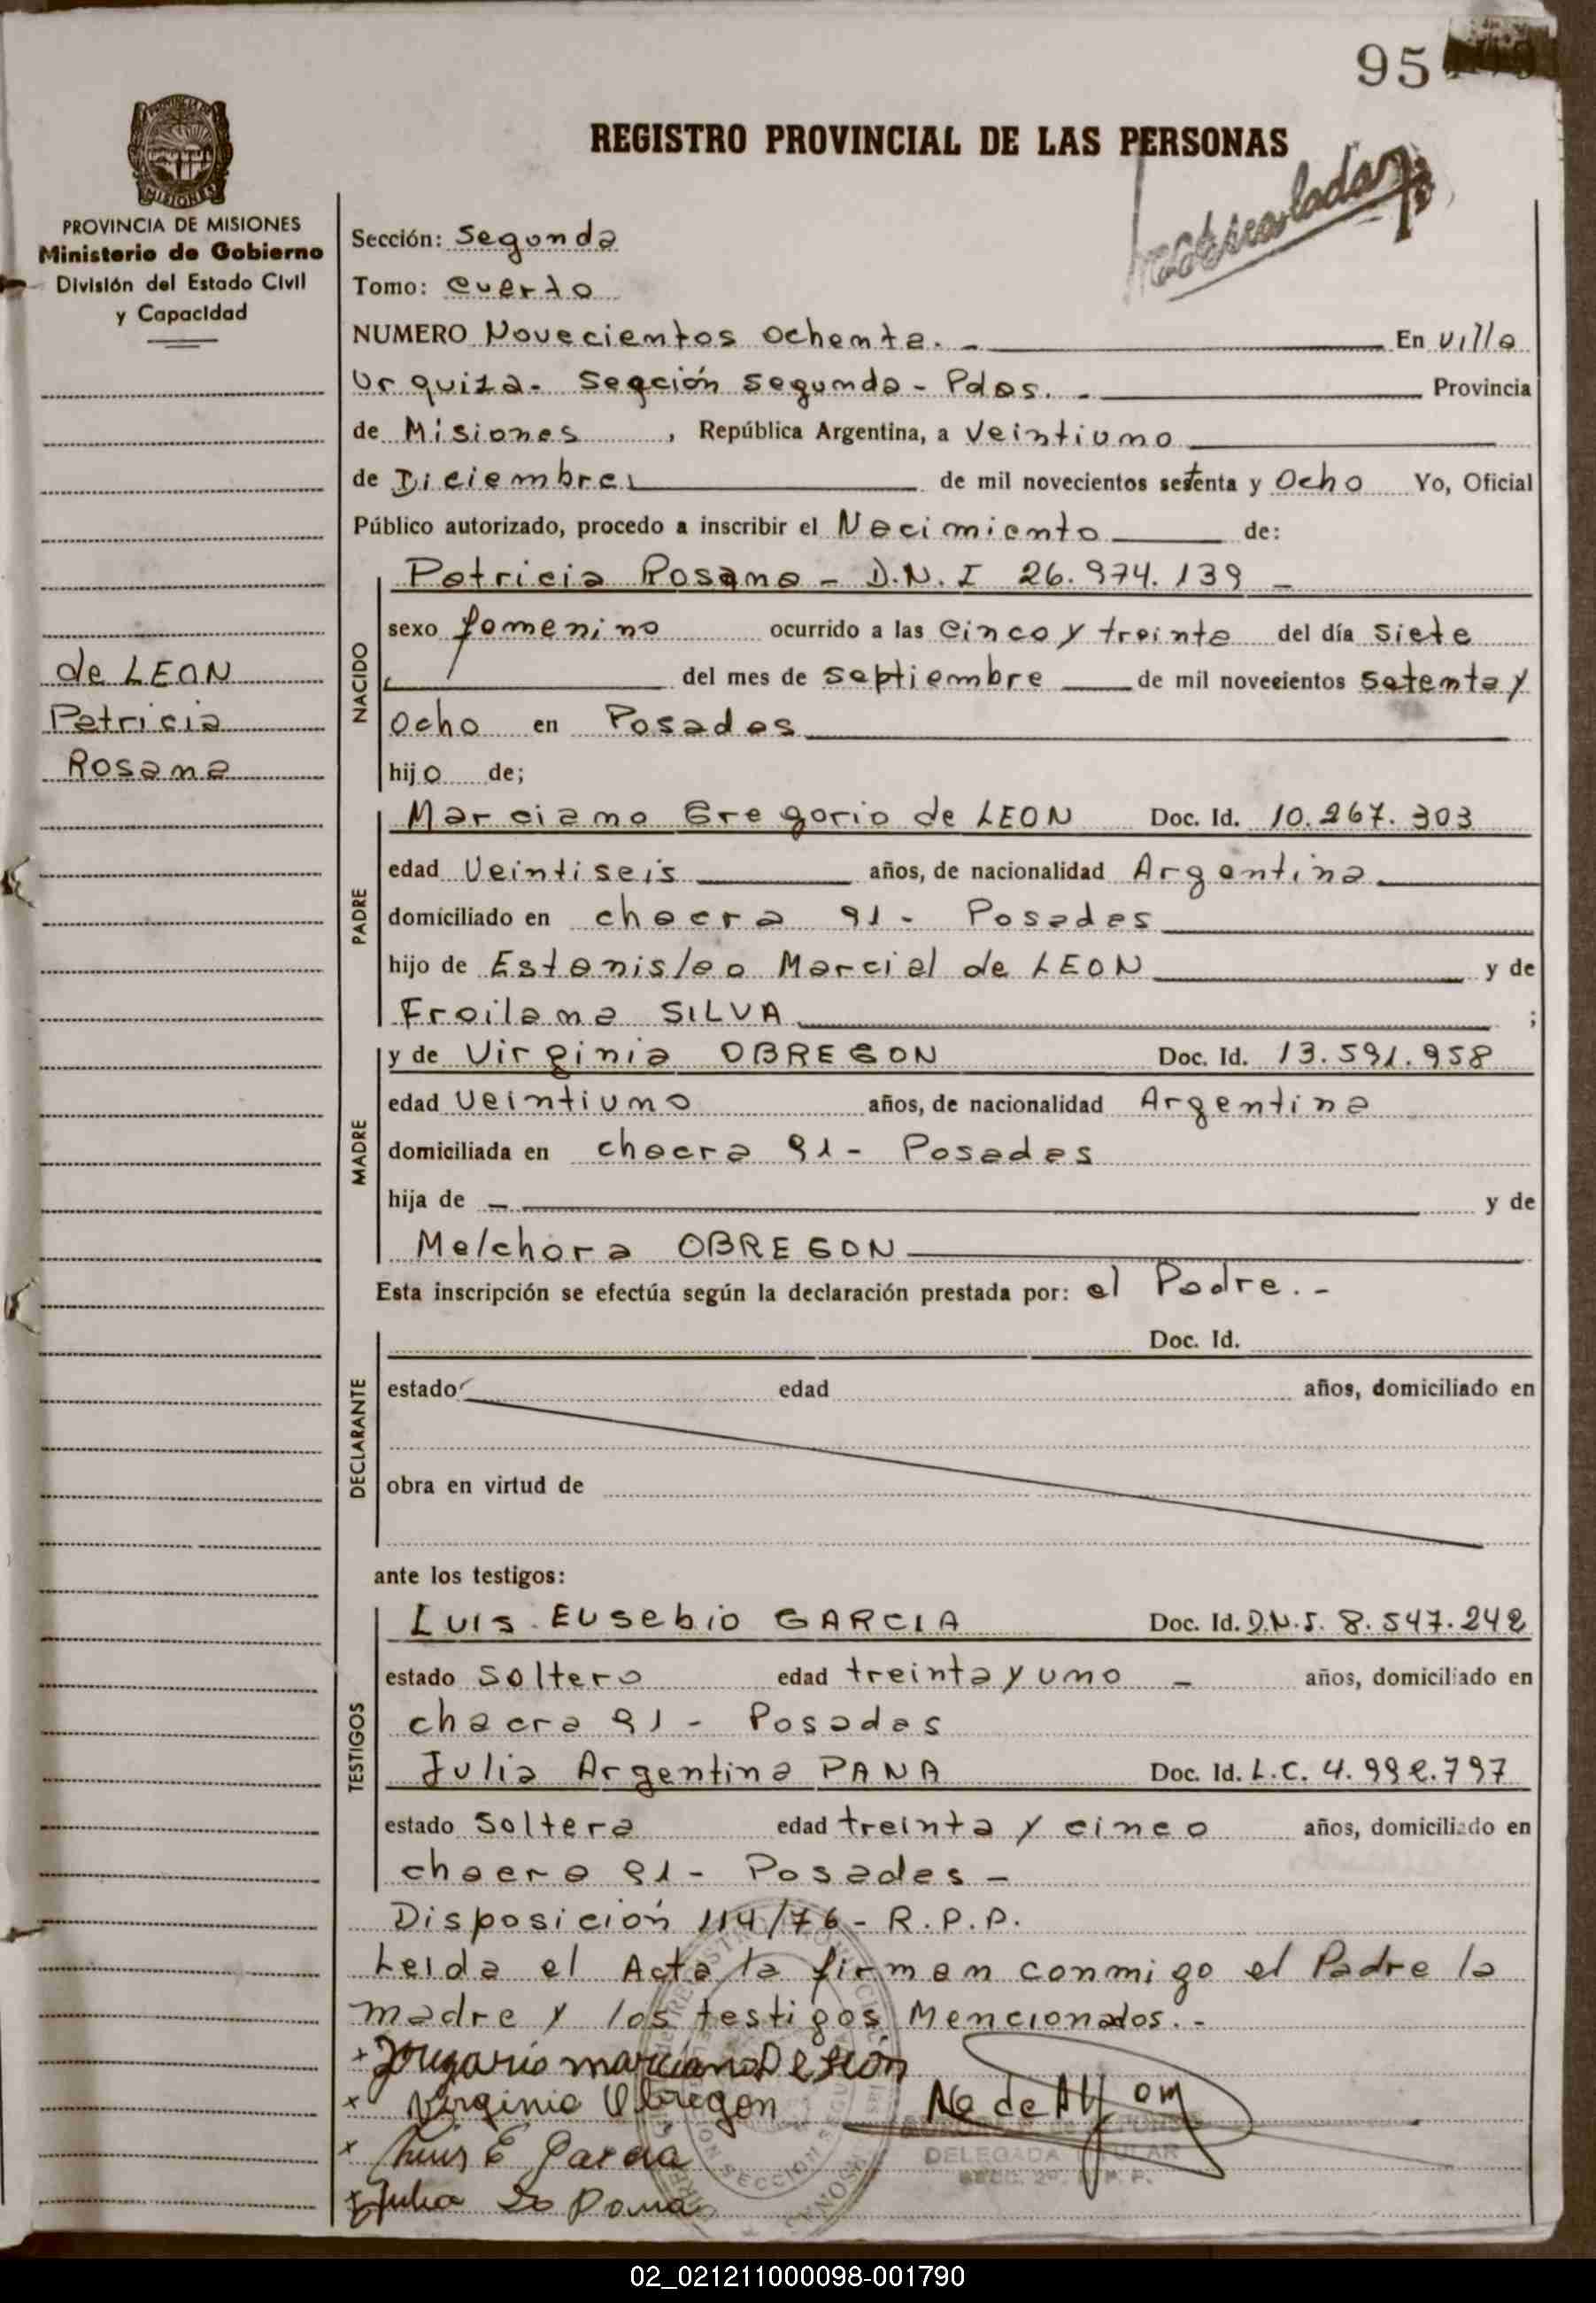 95
REGISTRO PROVINCIAL DE LAS PERSONAS
MISIONES
PROVINCIA DE MISIONES
Ministerio de Gobierno
División del Estado Civil
y Capacidad
de LEON
Patricia
Rosana
Sección: Segunda
Tomo: Cuarto
NUMERO Novecientos ochenta. - En Villa
Urquiza - Sección Segunda - Pdas. - Provincia
de Misiones, República Argentina, a Veintiuno
de Diciembre de mil novecientos setenta y Ocho Yo, Oficial
Público autorizado, procedo a inscribir el Nacimiento de:
NACIDO
Patricia Rosana - D.N.I 26.974.139 -
sexo femenino ocurrido a las Cinco y treinta del día Siete
del mes de Septiembre de mil novecientos Setenta y
Ocho en Posadas
hijo de;
PADRE
Marciano Gregorio de LEON Doc. Id. 10.267.303
edad Veintiseis años, de nacionalidad Argentina
domiciliado en chacra 91 - Posadas
hijo de Estanislao Marcial de LEON y de
Froilana SILVA ;
MADRE
y de Virginia OBREGON Doc. Id. 13.591.958
edad Veintiuno años, de nacionalidad Argentina
domiciliada en chacra 91 - Posadas
hija de - y de
Melchora OBREGON
Esta inscripción se efectúa según la declaración prestada por: el Padre. -
DECLARANTE
Doc. Id.
estado edad años, domiciliado en
obra en virtud de
ante los testigos:
TESTIGOS
Luis Eusebio GARCIA Doc. Id. D.N.I. 8.547.242
estado Soltero edad treinta y uno - años, domiciliado en
chacra 91 - Posadas
Julia Argentina PANA Doc. Id. L.C. 4.992.797
estado Soltera edad treinta y cinco años, domiciliado en
chacra 91 - Posadas -
Disposición 114/76 - R.P.P.
Leida el Acta la firman conmigo el Padre la
madre y los testigos Mencionados. -
marciano De León
x Virginia Obregon
x Luis E Garcia
x Julia Pana
DELEGADA TITULAR
02_021211000098-001790